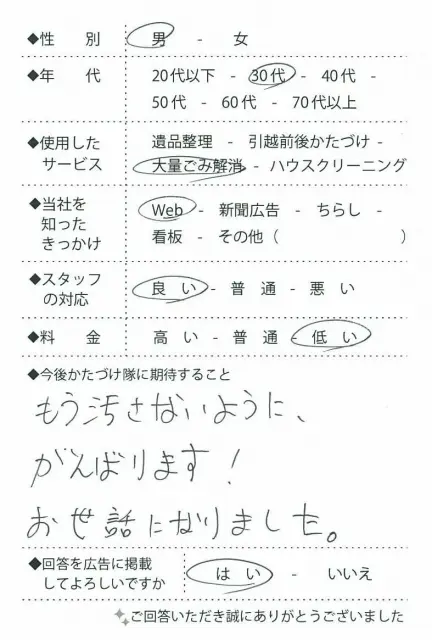 ◆性 別 男 - 女
◆年 代 20代以下 - 30代 - 40代 -
50代 - 60代 - 70代以上
◆使用した 遺品整理 - 引越前後かたづけ -
サービス 大量ごみ解消 - ハウスクリーニング
◆当社を Web - 新聞広告 - ちらし -
知った
きっかけ 看板 - その他( )
◆スタッフ
の対応 良 い - 普 通 - 悪 い
◆料 金 高 い - 普 通 - 低 い
◆今後かたづけ隊に期待すること
もう汚さないように、
がんばります!
お世話になりました。
◆回答を広告に掲載
してよろしいですか は い - いいえ
ご回答いただき誠にありがとうございました